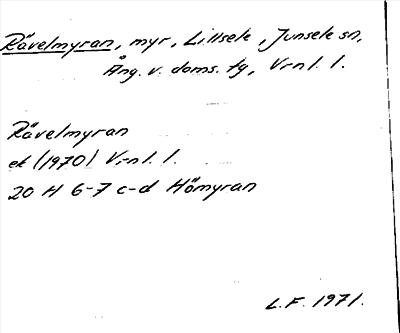 Rävelmyran, myr, Lillsele, Junsele sn,
Ång. v. doms. tg, Vrnl. l.
Rävelmyran
ek (1970) Vrnl. l.
20 H 6-7 c-d Hömyran
L.F. 1971.